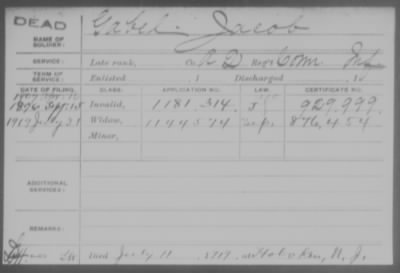 DEAD
Gabel Jacob
NAME OF SOLDIER:
SERVICE: Late rank, Co. R D Reg't Conn Inf
TERM OF SERVICE: Enlisted , 1 Discharged , 1
DATE OF FILING. CLASS. APPLICATION NO. LAW. CERTIFICATE NO.
1896 Sept. 15 Invalid, 1181.314. 929.999.
1917 July 21 Widow, 1104574 876,454
Minor,
ADDITIONAL SERVICES:
REMARKS:
Died July 11 1917 at Hoboken, N. J.